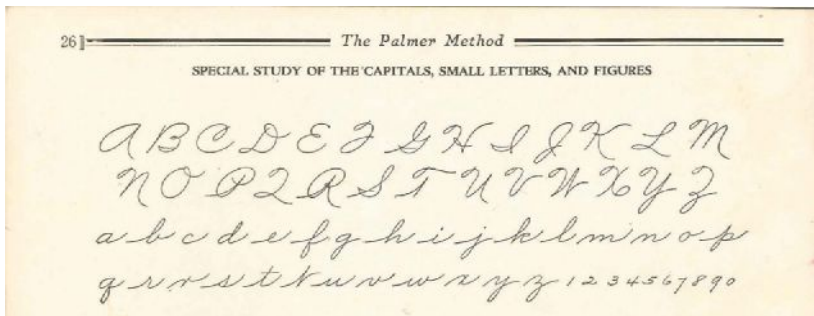 26 The Palmer Method
SPECIAL STUDY OF THE CAPITALS, SMALL LETTERS, AND FIGURES
A B C D E F G H I J K L M
N O P Q R S T U V W X Y Z
a b c d e f g h i j k l m n o p
q r r s t t u v w x y z 1 2 3 4 5 6 7 8 9 0